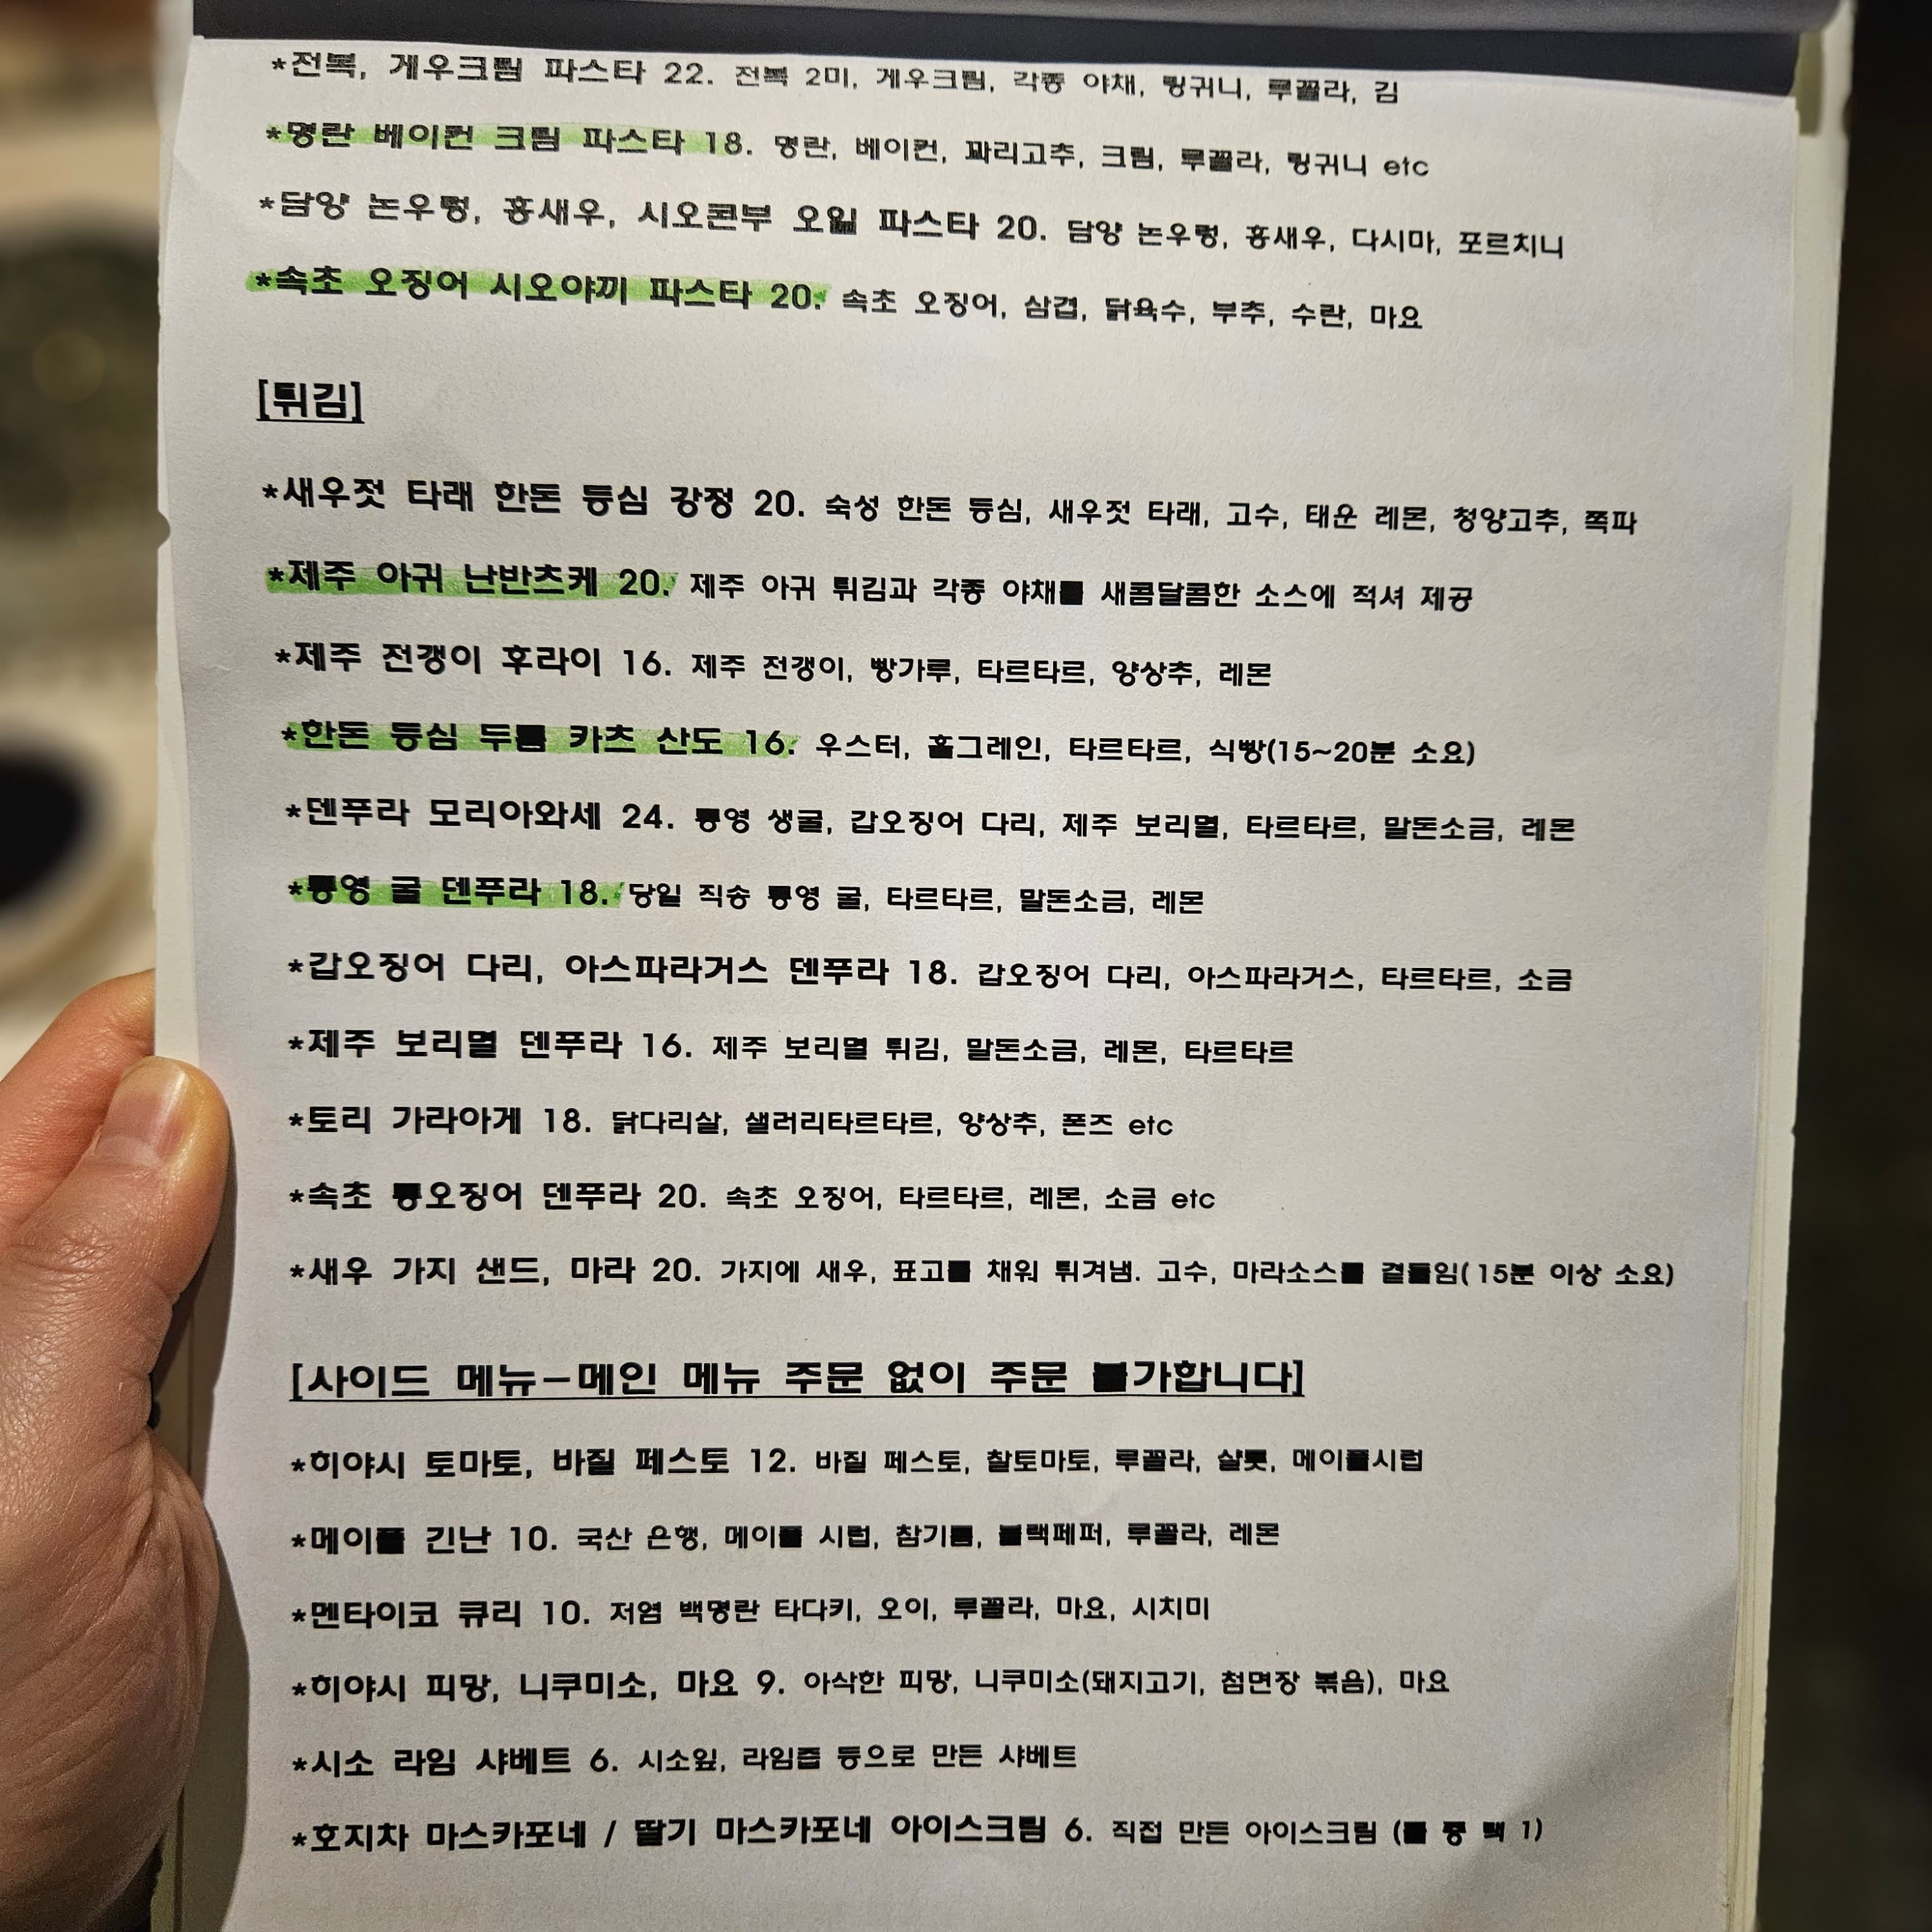 *전복, 게우크림 파스타 22. 전복 2미, 게우크림, 각종 야채, 링귀니, 루꼴라, 김
*명란 베이컨 크림 파스타 18. 명란, 베이컨, 꽈리고추, 크림, 루꼴라, 링귀니 etc
*담양 논우렁, 홍새우, 시오콘부 오일 파스타 20. 담양 논우렁, 홍새우, 다시마, 포르치니
*속초 오징어 시오야끼 파스타 20. 속초 오징어, 삼겹, 닭육수, 부추, 수란, 마요
[튀김]
*새우젓 타래 한돈 등심 강정 20. 숙성 한돈 등심, 새우젓 타래, 고수, 태운 레몬, 청양고추, 쪽파
*제주 아귀 난반츠케 20. 제주 아귀 튀김과 각종 야채를 새콤달콤한 소스에 적셔 제공
*제주 전갱이 후라이 16. 제주 전갱이, 빵가루, 타르타르, 양상추, 레몬
*한돈 등심 두툼 카츠 산도 16. 우스터, 홀그레인, 타르타르, 식빵(15~20분 소요)
*덴푸라 모리아와세 24. 통영 생굴, 갑오징어 다리, 제주 보리멸, 타르타르, 말돈소금, 레몬
*통영 굴 덴푸라 18. 당일 직송 통영 굴, 타르타르, 말돈소금, 레몬
*갑오징어 다리, 아스파라거스 덴푸라 18. 갑오징어 다리, 아스파라거스, 타르타르, 소금
*제주 보리멸 덴푸라 16. 제주 보리멸 튀김, 말돈소금, 레몬, 타르타르
*토리 가라아게 18. 닭다리살, 샐러리타르타르, 양상추, 폰즈 etc
*속초 통오징어 덴푸라 20. 속초 오징어, 타르타르, 레몬, 소금 etc
*새우 가지 샌드, 마라 20. 가지에 새우, 표고를 채워 튀겨냄. 고수, 마라소스를 곁들임(15분 이상 소요)
[사이드 메뉴-메인 메뉴 주문 없이 주문 불가합니다]
*히야시 토마토, 바질 페스토 12. 바질 페스토, 찰토마토, 루꼴라, 샬롯, 메이플시럽
*메이플 긴난 10. 국산 은행, 메이플 시럽, 참기름, 블랙페퍼, 루꼴라, 레몬
*멘타이코 큐리 10. 저염 백명란 타다키, 오이, 루꼴라, 마요, 시치미
*히야시 피망, 니쿠미소, 마요 9. 아삭한 피망, 니쿠미소(돼지고기, 첨면장 볶음), 마요
*시소 라임 샤베트 6. 시소잎, 라임즙 등으로 만든 샤베트
*호지차 마스카포네 / 딸기 마스카포네 아이스크림 6. 직접 만든 아이스크림 (둘 중 택 1)